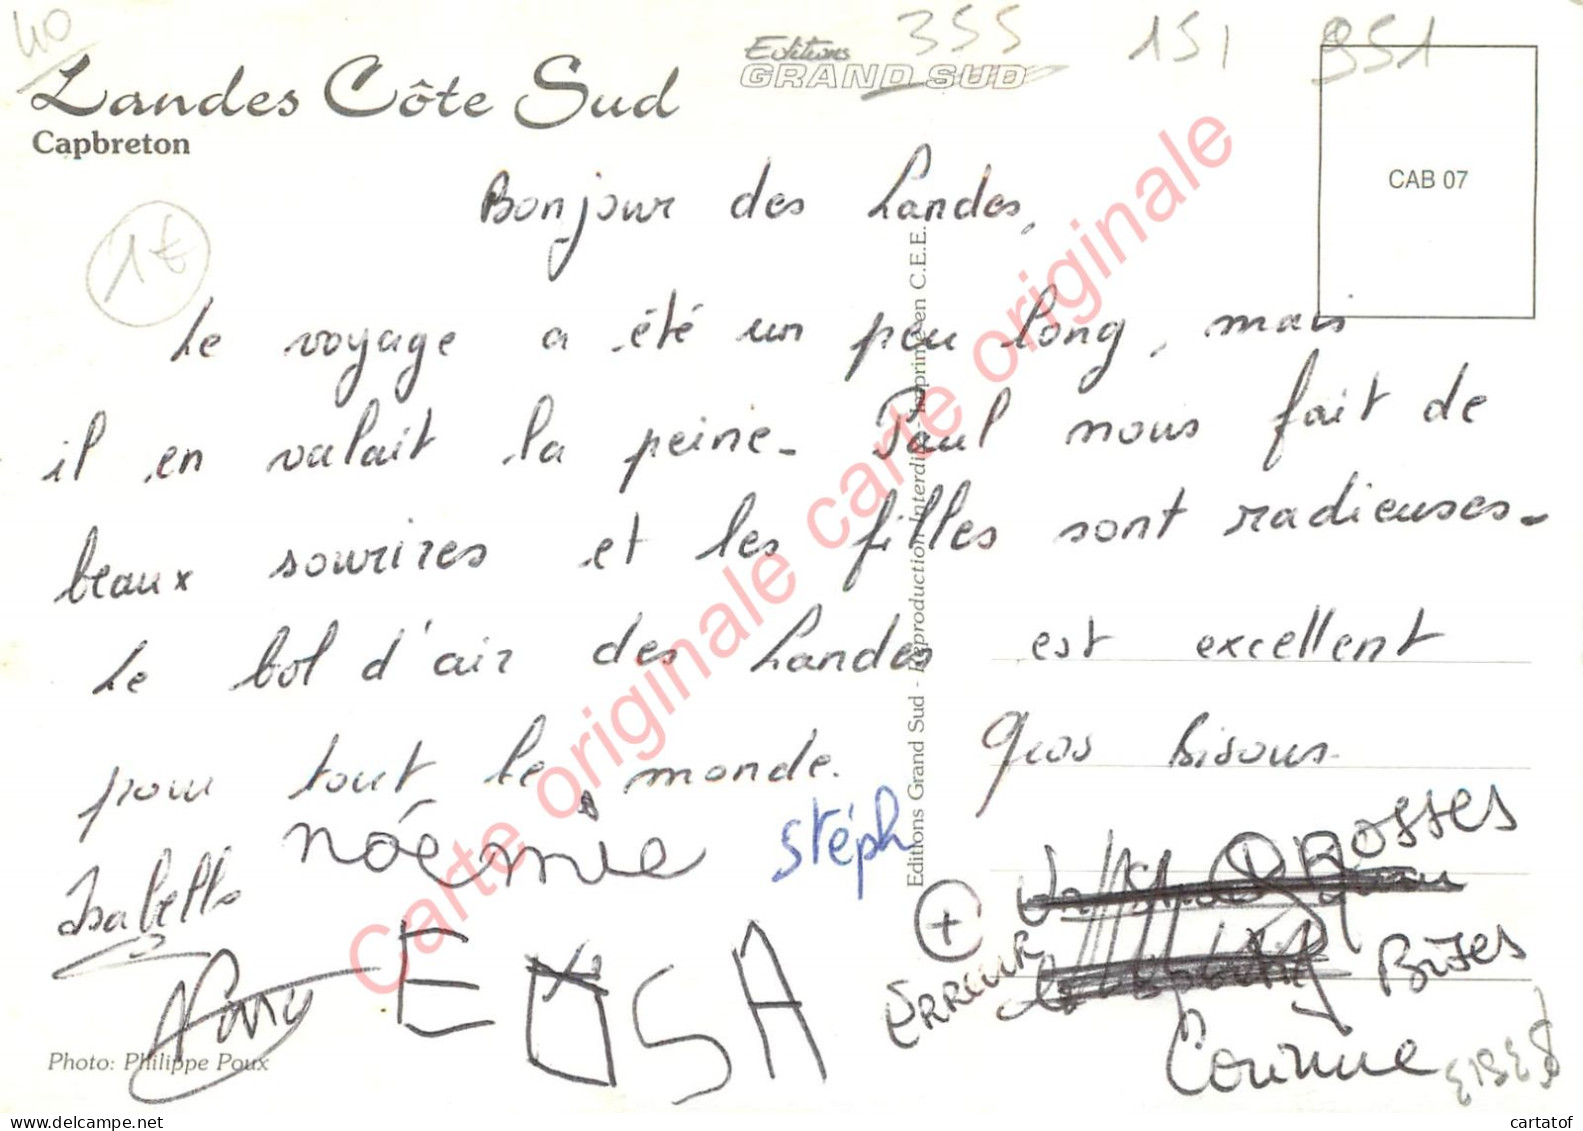 40
355 151 951
Editions
GRAND SUD
Landes Côte Sud
Capbreton
CAB 07
1€
Bonjour des Landes,
Le voyage a été un peu long, mais
il en valait la peine. Paul nous fait de
beaux sourires et les filles sont radieuses.
Le bol d'air des Landes est excellent
pour tout le monde. Gros bisous.
Isabelle noémie stéph
GROSSES
+
ERREUR
BISES
EOSA
Corinne
Photo: Philippe Poux
Editions Grand Sud - Reproduction Interdite - Imprimé en C.E.E.
Carte originale carte originale
cartatof